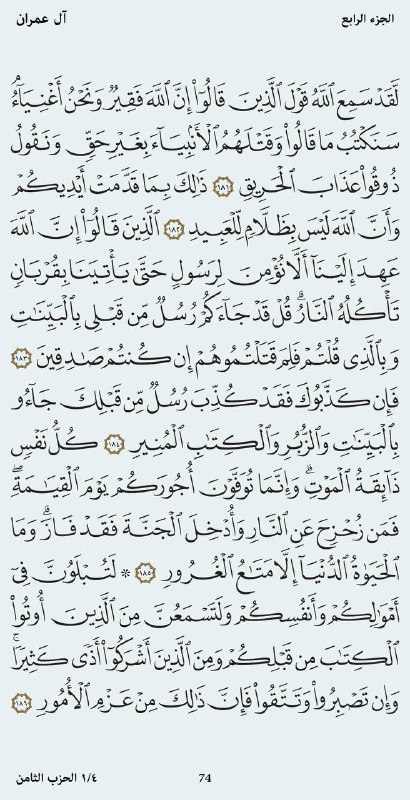 آل عمران
الجزء الرابع
لَّقَدْ سَمِعَ ٱللَّهُ قَوْلَ ٱلَّذِينَ قَالُوٓا۟ إِنَّ ٱللَّهَ فَقِيرٌ وَنَحْنُ أَغْنِيَآءُ ۘ
سَنَكْتُبُ مَا قَالُوا۟ وَقَتْلَهُمُ ٱلْأَنۢبِيَآءَ بِغَيْرِ حَقٍّ وَنَقُولُ
ذُوقُوا۟ عَذَابَ ٱلْحَرِيقِ ١٨١ ذَٰلِكَ بِمَا قَدَّمَتْ أَيْدِيكُمْ
وَأَنَّ ٱللَّهَ لَيْسَ بِظَلَّامٍ لِّلْعَبِيدِ ١٨٢ ٱلَّذِينَ قَالُوٓا۟ إِنَّ ٱللَّهَ
عَهِدَ إِلَيْنَآ أَلَّا نُؤْمِنَ لِرَسُولٍ حَتَّىٰ يَأْتِيَنَا بِقُرْبَانٍ
تَأْكُلُهُ ٱلنَّارُ ۗ قُلْ قَدْ جَآءَكُمْ رُسُلٌ مِّن قَبْلِى بِٱلْبَيِّنَٰتِ
وَبِٱلَّذِى قُلْتُمْ فَلِمَ قَتَلْتُمُوهُمْ إِن كُنتُمْ صَٰدِقِينَ ١٨٣
فَإِن كَذَّبُوكَ فَقَدْ كُذِّبَ رُسُلٌ مِّن قَبْلِكَ جَآءُو
بِٱلْبَيِّنَٰتِ وَٱلزُّبُرِ وَٱلْكِتَٰبِ ٱلْمُنِيرِ ١٨٤ كُلُّ نَفْسٍ
ذَآئِقَةُ ٱلْمَوْتِ ۗ وَإِنَّمَا تُوَفَّوْنَ أُجُورَكُمْ يَوْمَ ٱلْقِيَٰمَةِ ۖ
فَمَن زُحْزِحَ عَنِ ٱلنَّارِ وَأُدْخِلَ ٱلْجَنَّةَ فَقَدْ فَازَ ۗ وَمَا
ٱلْحَيَوٰةُ ٱلدُّنْيَآ إِلَّا مَتَٰعُ ٱلْغُرُورِ ١٨٥ * لَتُبْلَوُنَّ فِىٓ
أَمْوَٰلِكُمْ وَأَنفُسِكُمْ وَلَتَسْمَعُنَّ مِنَ ٱلَّذِينَ أُوتُوا۟
ٱلْكِتَٰبَ مِن قَبْلِكُمْ وَمِنَ ٱلَّذِينَ أَشْرَكُوٓا۟ أَذًى كَثِيرًا ۚ
وَإِن تَصْبِرُوا۟ وَتَتَّقُوا۟ فَإِنَّ ذَٰلِكَ مِنْ عَزْمِ ٱلْأُمُورِ ١٨٦
١/٤ الحزب الثامن
74